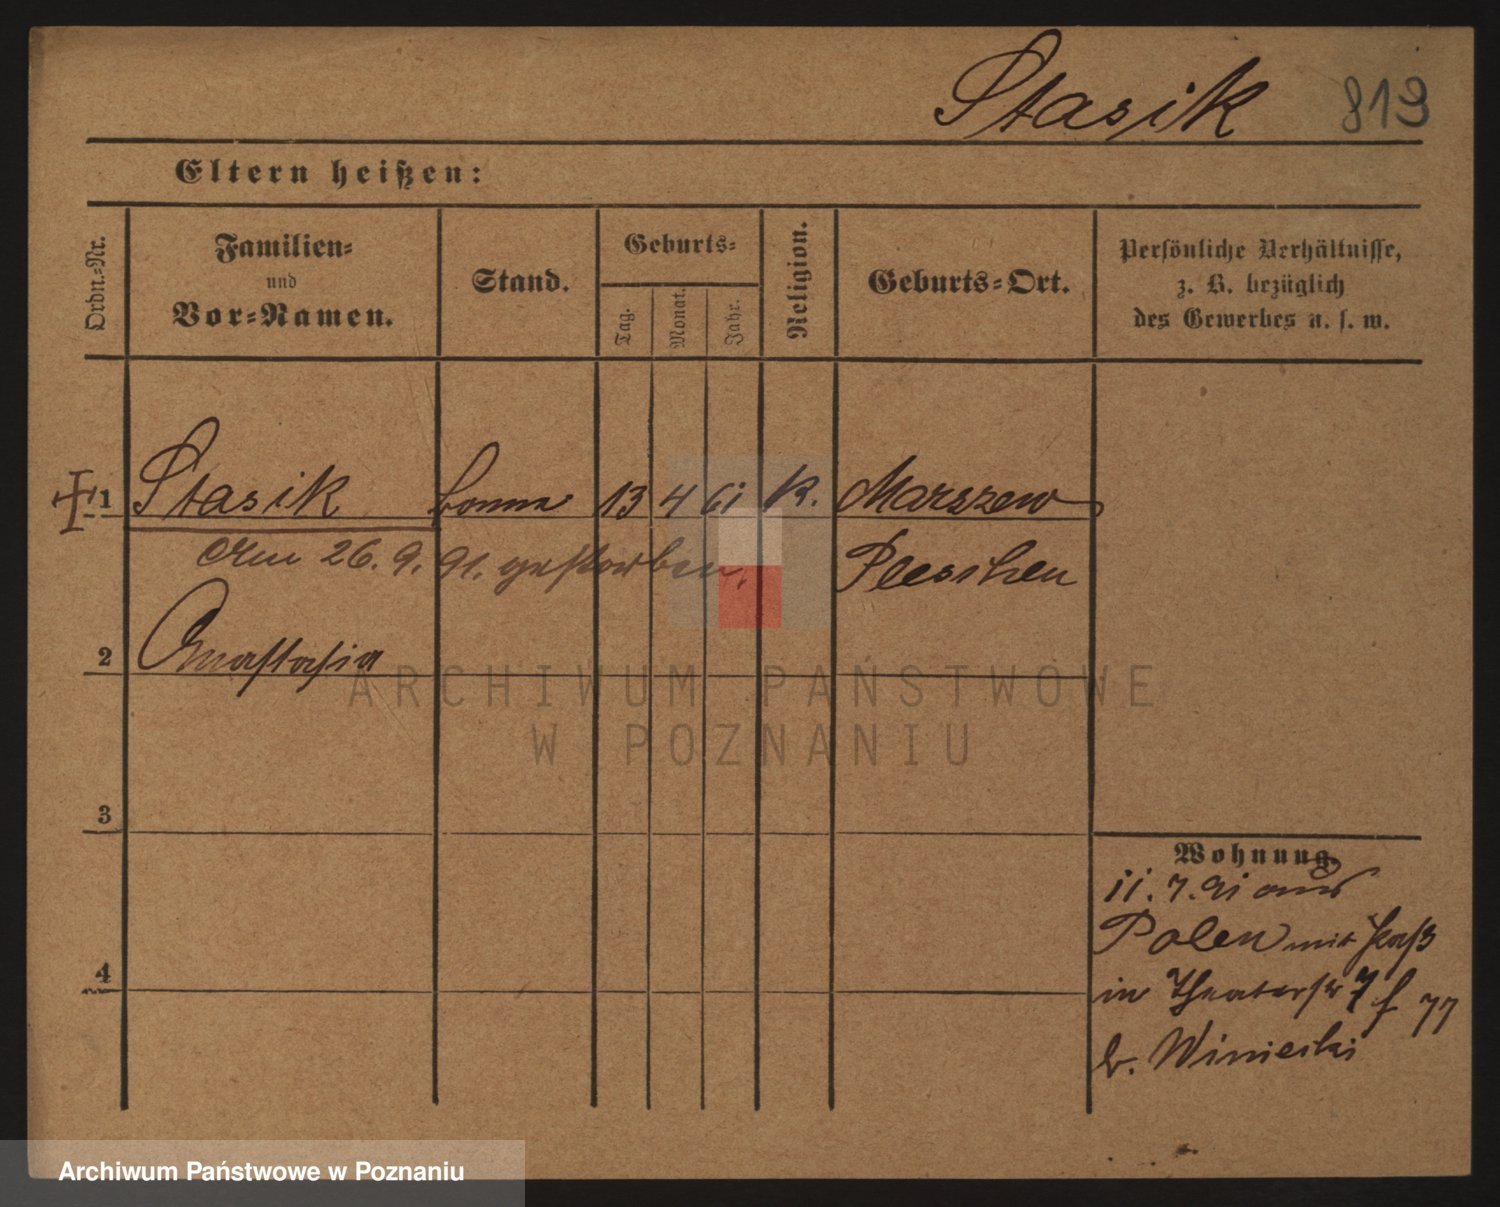 Stasik 819
Eltern heißen:
Ordn.-Nr.
Familien-
und
Vor-Namen.
Stand.
Geburts-
Tag.
Monat.
Jahr.
Religion.
Geburts-Ort.
Persönliche Verhältnisse,
z. B. bezüglich
des Gewerbes u. s. w.
1 Stasik Bonne 13 4 61 K. Marszew
am 26. 9. 91. gestorben. Pleschen
2 Anastasia
3
4
Wohnung.
11. 7. 91 aus
Polen mit Paß
in Theaterstr 7 77
b. Winiecki
ARCHIWUM PAŃSTWOWE
W POZNANIU
Archiwum Państwowe w Poznaniu